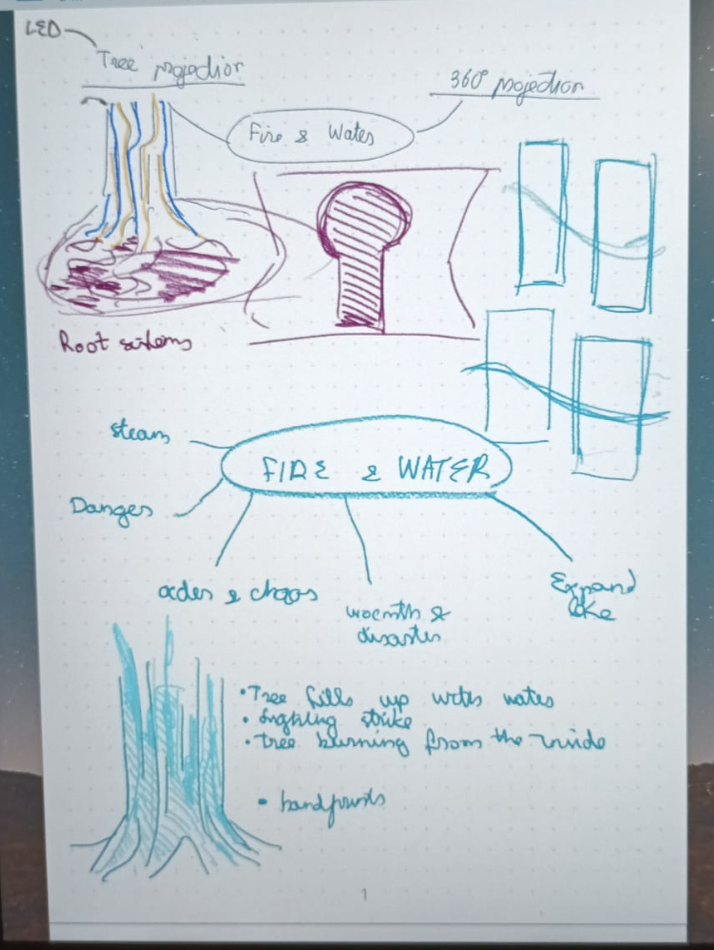 LED
Tree projection
360° projection
Fire & Water
Root sistems
steam
FIRE & WATER
Danger
order & chaos
warmth &
disaster
Expand
like
• Tree fills up with water
• lighting strike
• tree burning from the inside
• handprints
1